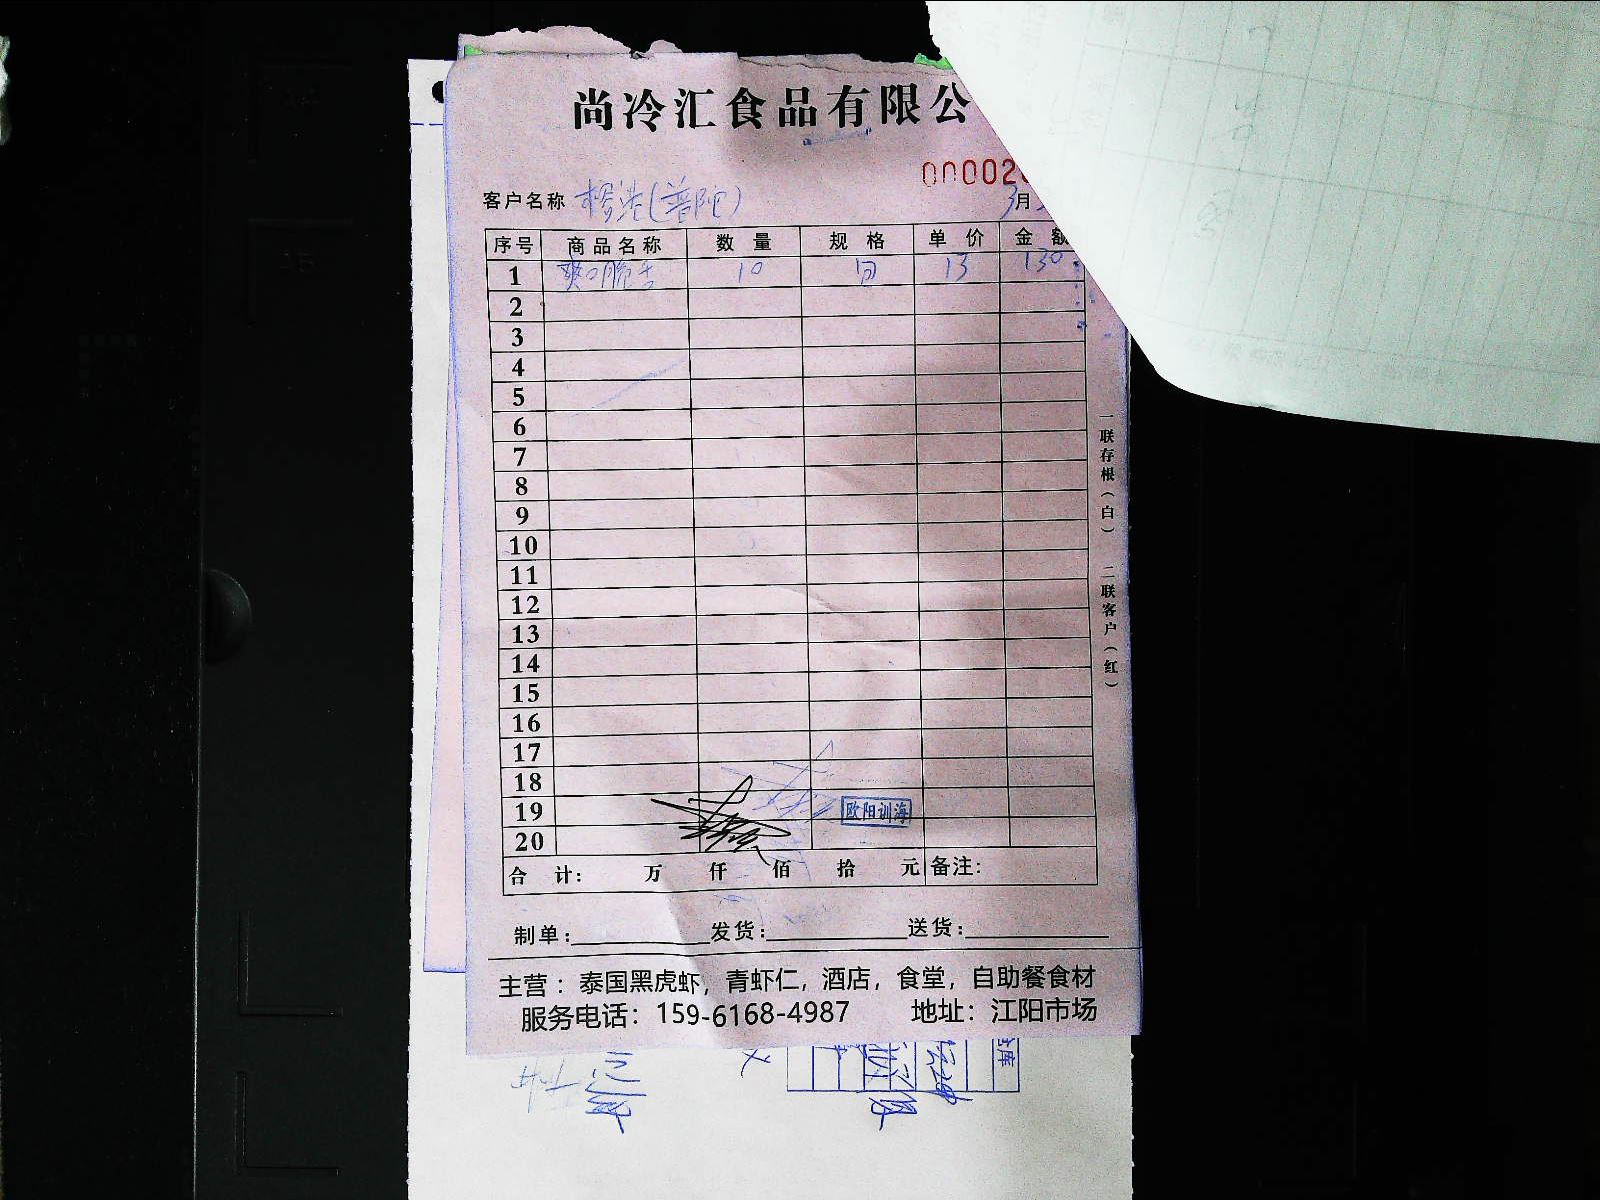 尚冷汇食品有限公
00002
客户名称 (普陀) 3月
序号 商品名称 数量 规格 单价 金额
1 爽口脆舌 10 13 130
2
3
4
5
6
7
8
9
10
11
12
13
14
15
16
17
18
19 欧阳训海
20
合计: 万 仟 佰 拾 元 备注:
制单: 发货: 送货:
主营：泰国黑虎虾，青虾仁，酒店，食堂，自助餐食材
服务电话：159-6168-4987 地址：江阳市场
一联存根(白) 二联客户(红)